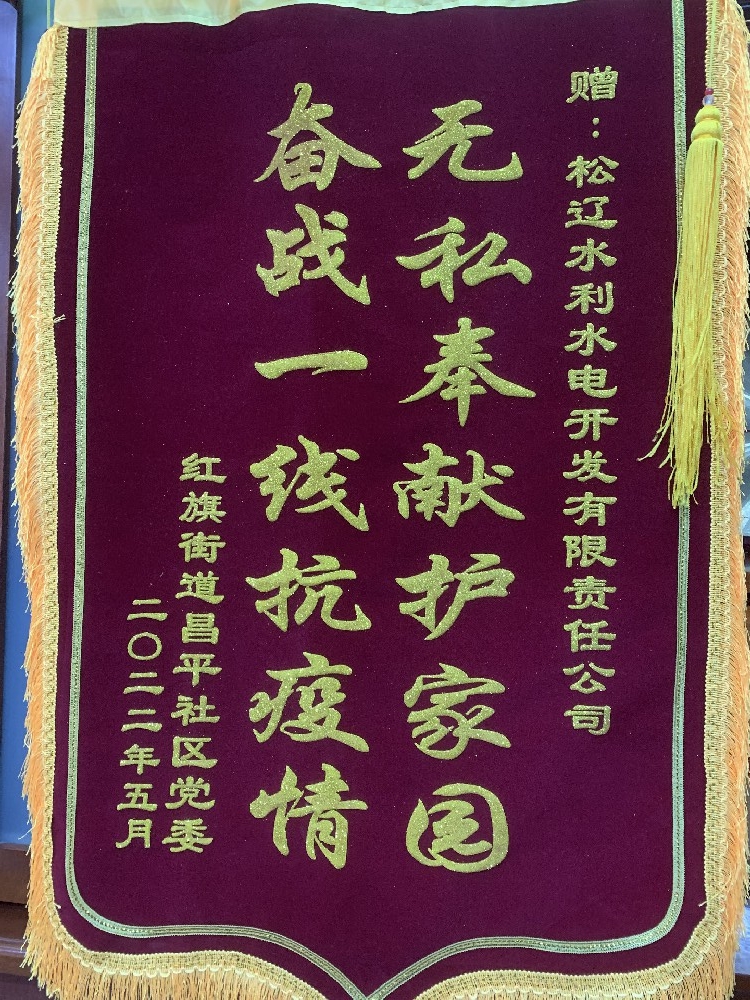 赠：松辽水利水电开发有限责任公司
无私奉献护家园
奋战一线抗疫情
红旗街道昌平社区党委
二〇二二年五月